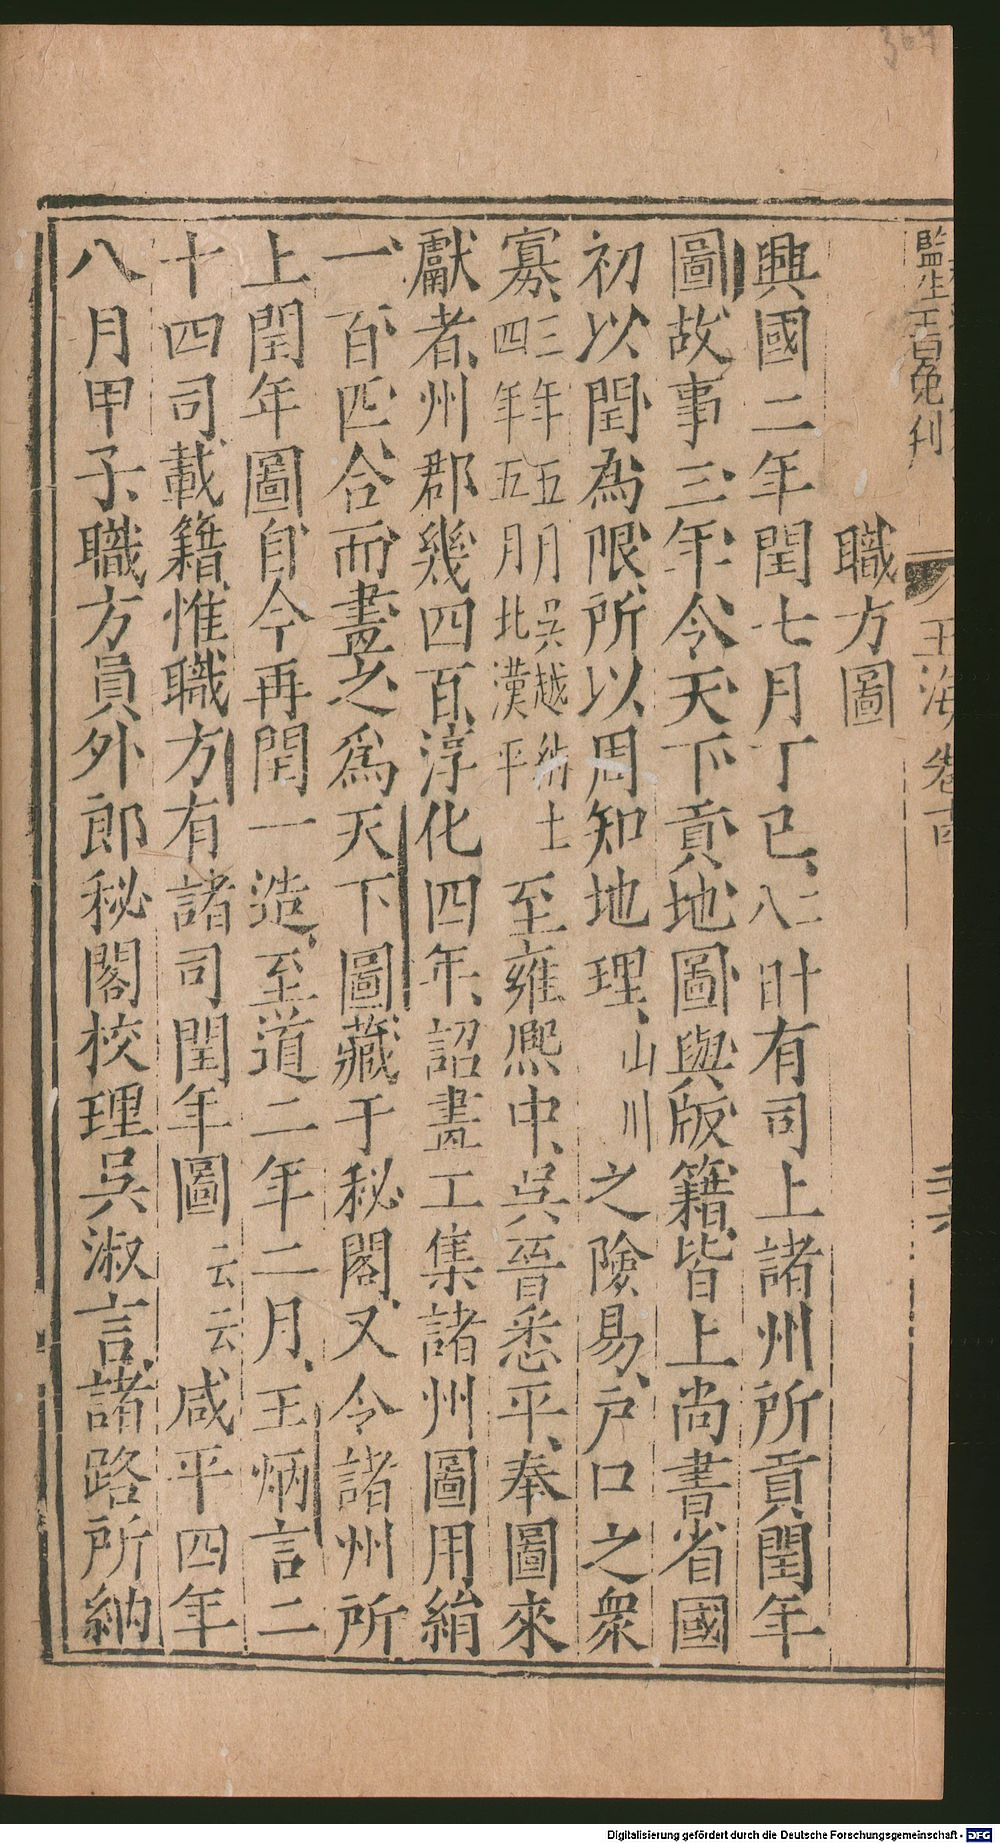 監生王百免刊
玉海卷十四
職方圖
興國二年閏七月丁巳二八日有司上諸州所貢閏年
圖故事三年令天下貢地圖與版籍皆上尚書省國
初以閏為限所以周知地理山川之險易戶口之衆
寡三年五月吳越納土四年五月北漢平至雍熙中吳晉悉平奉圖來
獻者州郡幾四百淳化四年詔畫工集諸州圖用絹
一百匹合而畫之爲天下圖藏于秘閣又令諸州所
上閏年圖自今再閏一造至道二年二月王炳言二
十四司載籍惟職方有諸司閏年圖云云咸平四年
八月甲子職方員外郎秘閣校理吳淑言諸路所納
Digitalisierung gefördert durch die Deutsche Forschungsgemeinschaft - DFG